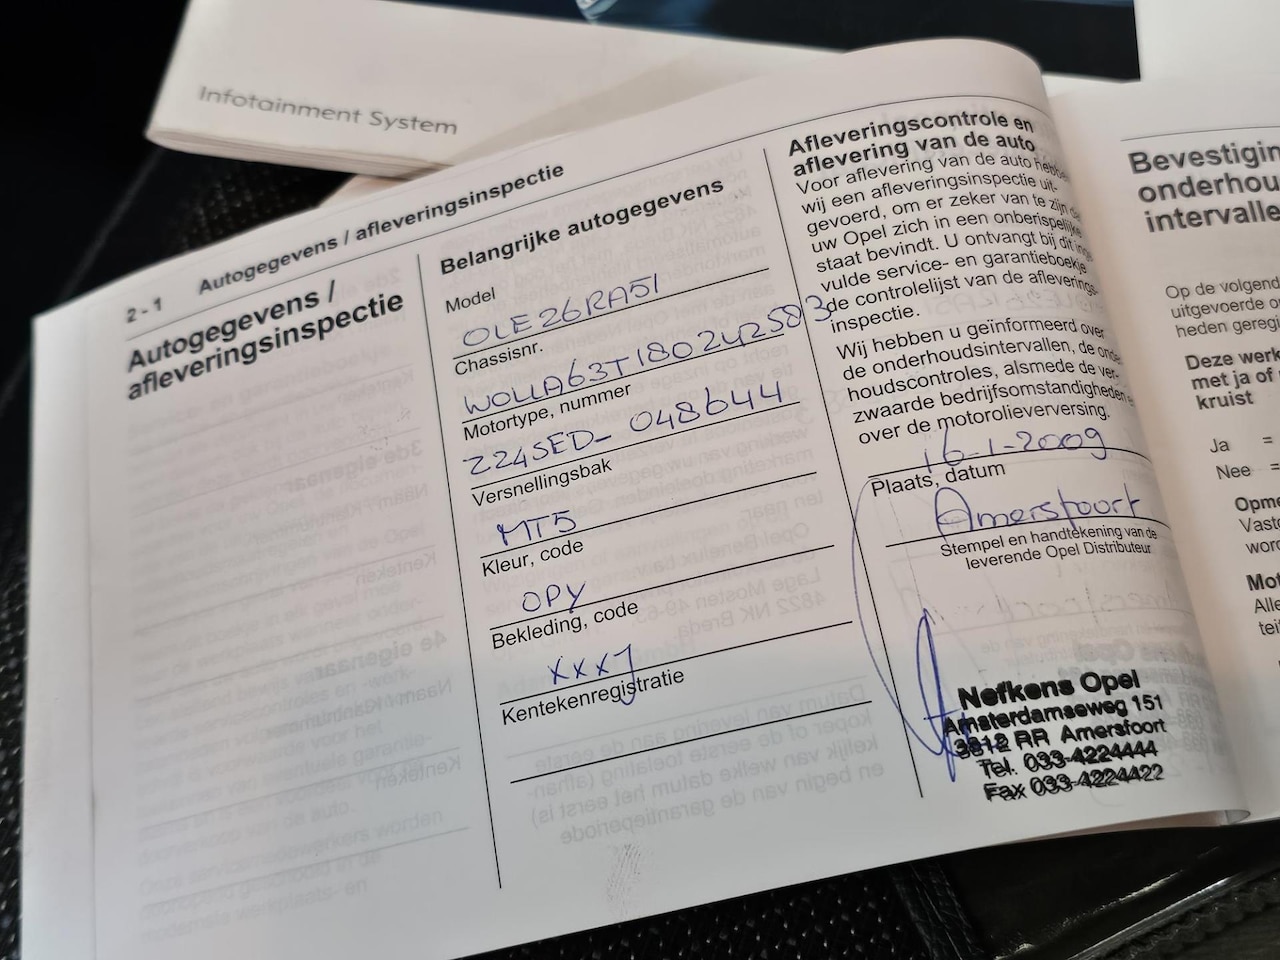 Infotainment System
2 - 1 Autogegevens / afleveringsinspectie
Autogegevens /
afleveringsinspectie
Belangrijke autogegevens
Model
OLE26RA51
Chassisnr.
WOLLA63T180242583
Motortype, nummer
Z24SED- 048644
Versnellingsbak
MT5
Kleur, code
OPY
Bekleding, code
XXXJ
Kentekenregistratie
Afleveringscontrole en
aflevering van de auto
Voor aflevering van de auto hebben
wij een afleveringsinspectie uit-
gevoerd, om er zeker van te zijn
uw Opel zich in een onberispelijke
staat bevindt. U ontvangt bij dit
vulde service- en garantieboekje
de controlelijst van de afleverings-
inspectie.
Wij hebben u geïnformeerd over
de onderhoudsintervallen, de
houdscontroles, alsmede de ver-
zwaarde bedrijfsomstandigheden
over de motorolieverversing.
16-1-2009
Plaats, datum
Amersfoort
Stempel en handtekening van de
leverende Opel Distributeur
Nefkens Opel
Amsterdamseweg 151
3812 RR Amersfoort
Tel. 033-4224444
Fax 033-4224422
Bevestigin
onderhou
intervalle
Op de volgend
uitgevoerde o
heden geregi
Deze werk
met ja of
kruist
Ja =
Nee =
Opme
Vaste
word
Mot
Alle
teit